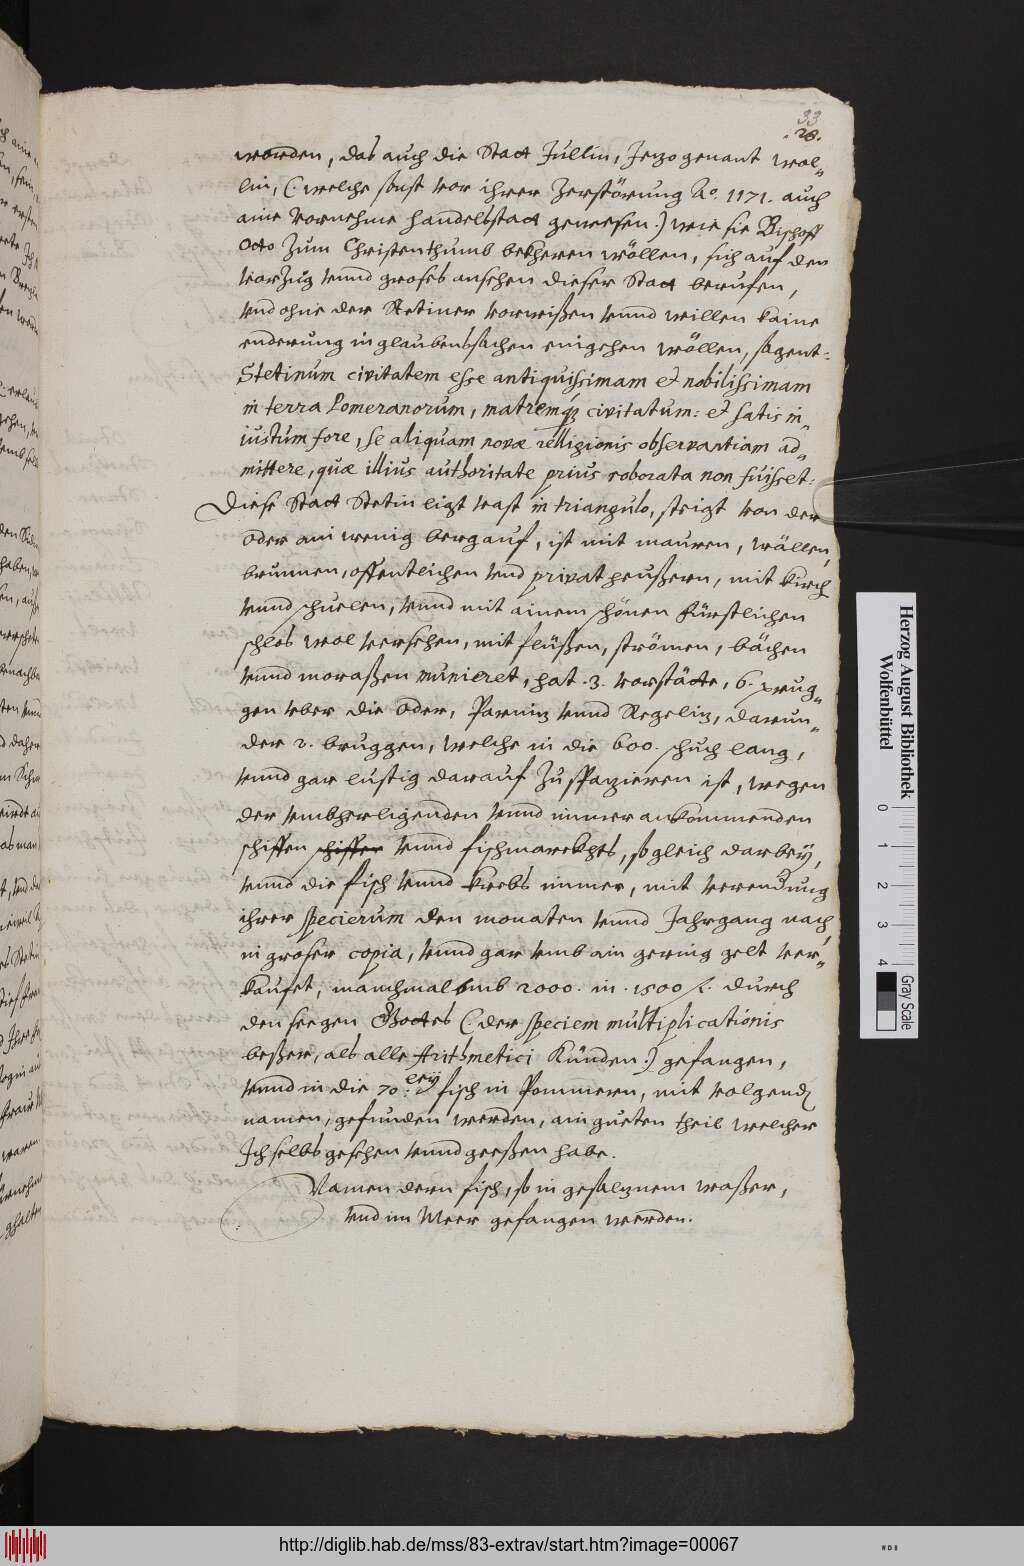 33
.28.
worden, das auch die Statt Jullin, Jetzo genant Wol-
lin, (: welche sonst vor ihrer Zerstörung Ao. 1171. auch
aine vornehme handelsstatt gewesen:) wie sie Bischoff
Otto zum Christenthumb bekheren wöllen, sich auf den
vorzug vnnd groses ansehen dieser Statt berufen,
vnd ohne der Stetiner vorwißen vnnd willen kaine
enderung in glaubenssachen eingehen wöllen, sagent:
Stetinum civitatem esse antiquissimam et nobilissimam
in terra Pomeranorum, matremq; civitatum: et satis in-
iustum fore, se aliquam novæ relligionis observantiam ad-
mittere, quæ illius authoritate prius roborata non fuisset:
Diese Statt Stetin ligt vast in triangulo, steigt von der
Oder ain wenig bergauf, ist mit mauren, wällen,
brunnen, offentlichen vnd privat heußern, mit kirch
vnnd schuelen, vnnd mit ainem schönen fürstlichen
schlos wol versehen, mit flüßen, strömen, bächen
vnnd moraßen munieret, hat .3. vorstätte, 6. prug-
gen vber die Oder, Parnitz vnnd Regelitz, darun-
der 2. bruggen, welche in die 600. schuch lang,
vnnd gar lustig darauf zuspatzieren ist, wegen
der vmbherligenden vnnd immer ankommenden
schiffen schiffer vnnd fischmarckhts, so gleich darbey,
vnnd die fisch vnnd krebs immer, mit verendung
ihrer specierum den monaten vnnd Jahrgang nach,
in groser copia, vnnd gar vmb ain gering gelt ver-
kaufet, manchmal vmb 2000. in .1500 f. durch
den seegen Gottes (: der speciem multiplicationis
beßer, als alle Arithmetici künden:) gefangen,
vnnd in die 70.erley fisch in Pommern, mit volgenden
namen, gefunden werden, ain gueten theil welcher
Ich selbs gesehen vnnd geeßen habe.
Namen dern fisch, so in gesaltznem waßer,
vnd im Meer gefangen werden.
Herzog August Bibliothek
Wolfenbüttel
0 1 2 3 4
Gray Scale
http://diglib.hab.de/mss/83-extrav/start.htm?image=00067